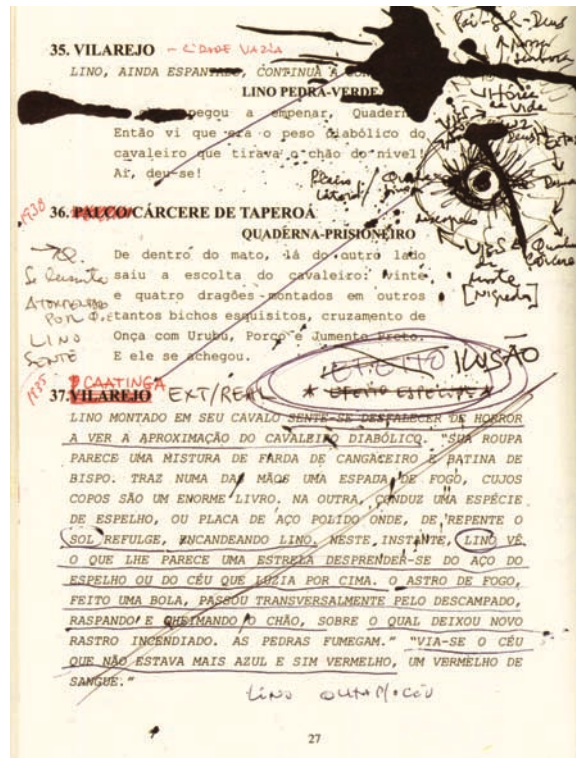 Pai-Sol-Deus
Nossa Senhora
35. VILAREJO - CIDADE VAZIA
LINO, AINDA ESPANTADO, CONTINUA A
LINO PEDRA-VERDE
pegou a empenar, Quaderna
Então vi que era o peso diabólico do
cavaleiro que tirava o chão do nível!
Aí, deu-se!
1938
36. PALCO/CÁRCERE DE TAPEROÁ
QUADERNA-PRISIONEIRO
De dentro do mato, lá do outro lado
saiu a escolta do cavaleiro: vinte
e quatro dragões montados em outros
tantos bichos esquisitos, cruzamento de
Onça com Urubu, Porco e Jumento Preto.
E ele se achegou.
ATORMENTADO
POR
LINO
SENTE
EFEITO ILUSÃO
* EFEITO ESPECIAL *
1935
CAATINGA
37. VILAREJO EXT/REAL
LINO MONTADO EM SEU CAVALO SENTE-SE DESFALECER DE HORROR
A VER A APROXIMAÇÃO DO CAVALEIRO DIABÓLICO. "SUA ROUPA
PARECE UMA MISTURA DE FARDA DE CANGACEIRO E BATINA DE
BISPO. TRAZ NUMA DAS MÃOS UMA ESPADA DE FOGO, CUJOS
COPOS SÃO UM ENORME LIVRO. NA OUTRA, CONDUZ UMA ESPÉCIE
DE ESPELHO, OU PLACA DE AÇO POLIDO ONDE, DE REPENTE O
SOL REFULGE, ENCANDEANDO LINO. NESTE INSTANTE, LINO VÊ
O QUE LHE PARECE UMA ESTRELA DESPRENDER-SE DO AÇO DO
ESPELHO OU DO CÉU QUE LUZIA POR CIMA. O ASTRO DE FOGO,
FEITO UMA BOLA, PASSOU TRANSVERSALMENTE PELO DESCAMPADO,
RASPANDO E QUEIMANDO O CHÃO, SOBRE O QUAL DEIXOU NOVO
RASTRO INCENDIADO. AS PEDRAS FUMEGAM." "VIA-SE O CÉU
QUE NÃO ESTAVA MAIS AZUL E SIM VERMELHO, UM VERMELHO DE
SANGUE."
LINO OLHA P/ O CÉU
27